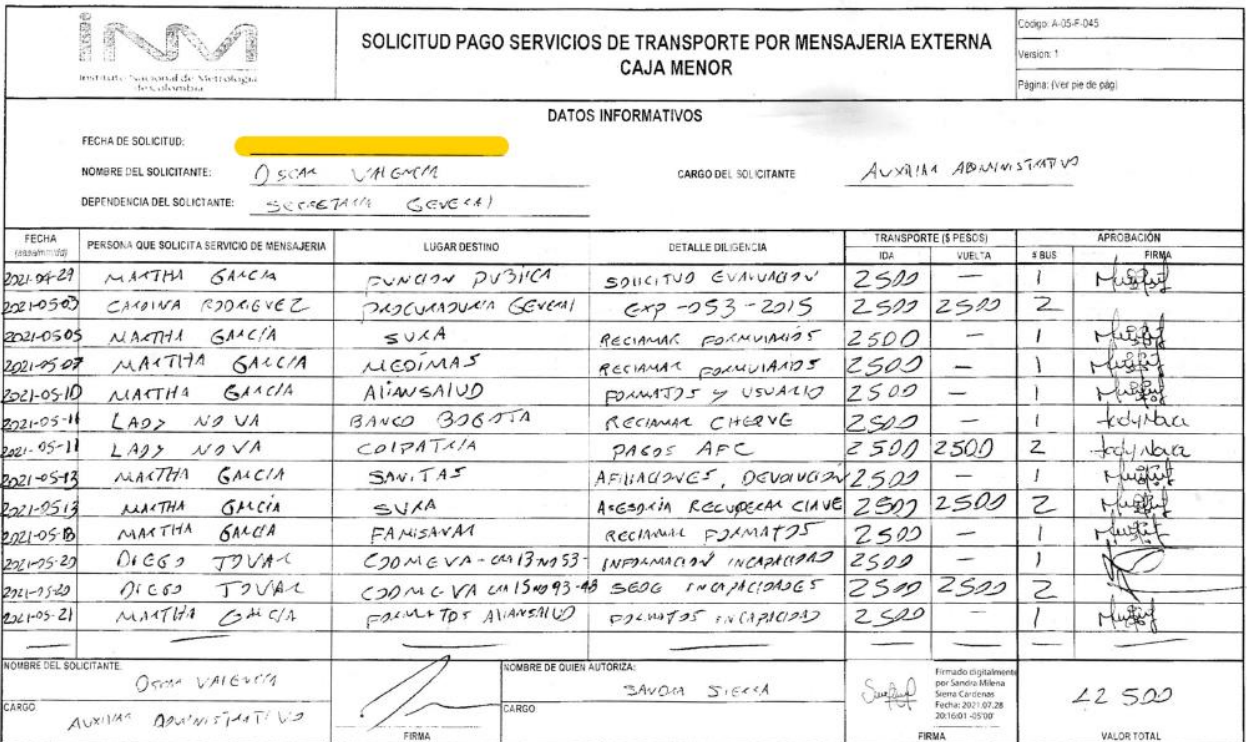 INM
Instituto Nacional de Metrología
de Colombia
SOLICITUD PAGO SERVICIOS DE TRANSPORTE POR MENSAJERIA EXTERNA
CAJA MENOR
Codigo: A-05-F-045
Version: 1
Página: (Ver pie de pág)
DATOS INFORMATIVOS
FECHA DE SOLICITUD:
NOMBRE DEL SOLICITANTE: OSCAR VALENCIA CARGO DEL SOLICITANTE AUXILIAR ADMINISTRATIVO
DEPENDENCIA DEL SOLICTANTE: SECRETARIA GENERAL
FECHA (aaaa/mm/dd) PERSONA QUE SOLICITA SERVICIO DE MENSAJERIA LUGAR DESTINO DETALLE DILIGENCIA TRANSPORTE ($ PESOS) IDA VUELTA # BUS APROBACIÓN FIRMA
2021-04-29 MARTHA GARCIA FUNCION PUBLICA SOLICITUD EVALUACION 2500 — 1
2021-05-03 CAROLINA RODRIGUEZ PROCURADURIA GENERAL EXP-053-2015 2500 2500 2
2021-05-05 MARTHA GARCÍA SURA RECLAMAR FORMULARIOS 2500 — 1
2021-05-07 MARTHA GARCIA MEDIMAS RECLAMAR FORMULARIOS 2500 — 1
2021-05-10 MARTHA GARCIA ALIANSALUD FORMATOS Y USUARIO 2500 — 1
2021-05-11 LADY NOVA BANCO BOGOTA RECLAMAR CHEQUE 2500 — 1 Lady Nova
2021-05-11 LADY NOVA COLPATRIA PAGOS AFC 2500 2500 2 Lady Nova
2021-05-13 MARTHA GARCIA SANITAS AFILIACIONES, DEVOLUCIÓN 2500 — 1
2021-05-13 MARTHA GARCÍA SURA ASESORÍA RECUPERAR CLAVE 2500 2500 2
2021-05-18 MARTHA GARCIA FAMISANAR RECLAMAR FORMATOS 2500 — 1
2021-05-20 DIEGO TOVAR COOMEVA-CRA 13 NO 53- INFORMACION INCAPACIDAD 2500 — 1
2021-05-20 DIEGO TOVAR COOMEVA CRA 15 NO 93-48 SEDE INCAPACIDADES 2500 2500 2
2021-05-21 MARTHA GARCIA FORMATOS ALIANSALUD FORMATOS INCAPACIDAD 2500 — 1
NOMBRE DEL SOLICITANTE: OSCAR VALENCIA
CARGO AUXILIAR ADMINISTRATIVO
FIRMA
NOMBRE DE QUIEN AUTORIZA: SANDRA SIERRA
CARGO
Firmado digitalmente
por Sandra Milena
Sierra Cárdenas
Fecha: 2021.07.28
20:16:01 -05'00'
FIRMA
42 500
VALOR TOTAL